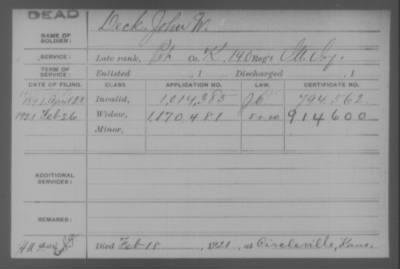 DEAD
NAME OF SOLDIER: Deck, John W.
SERVICE: Late rank, Pvt Co. K, 140 Reg't Ill. Inf.
TERM OF SERVICE: Enlisted , 1 Discharged , 1
DATE OF FILING. CLASS. APPLICATION NO. LAW. CERTIFICATE NO.
1891 Apr Invalid, 1,014,385 794,562
1921 Feb 26 Widow, 1170,481 914600
Minor,
ADDITIONAL SERVICES:
REMARKS:
Died Feb 18, 1921, at Circleville, Kans.